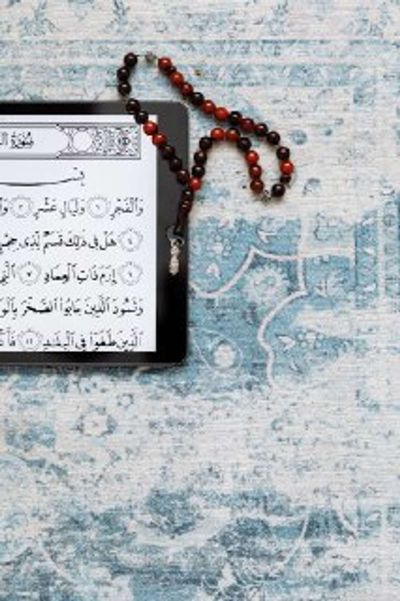 سُورَةُ
بِسْمِ
وَٱلْفَجْرِ ١ وَلَيَالٍ عَشْرٍ ٢ وَٱ
٤ هَلْ فِى ذَٰلِكَ قَسَمٌ لِّذِى حِجْرٍ
٦ إِرَمَ ذَاتِ ٱلْعِمَادِ ٧ ٱلَّتِى
وَثَمُودَ ٱلَّذِينَ جَابُوا۟ ٱلصَّخْرَ بِٱلْوَا
ٱلَّذِينَ طَغَوْا۟ فِى ٱلْبِلَٰدِ ١١ فَأَ